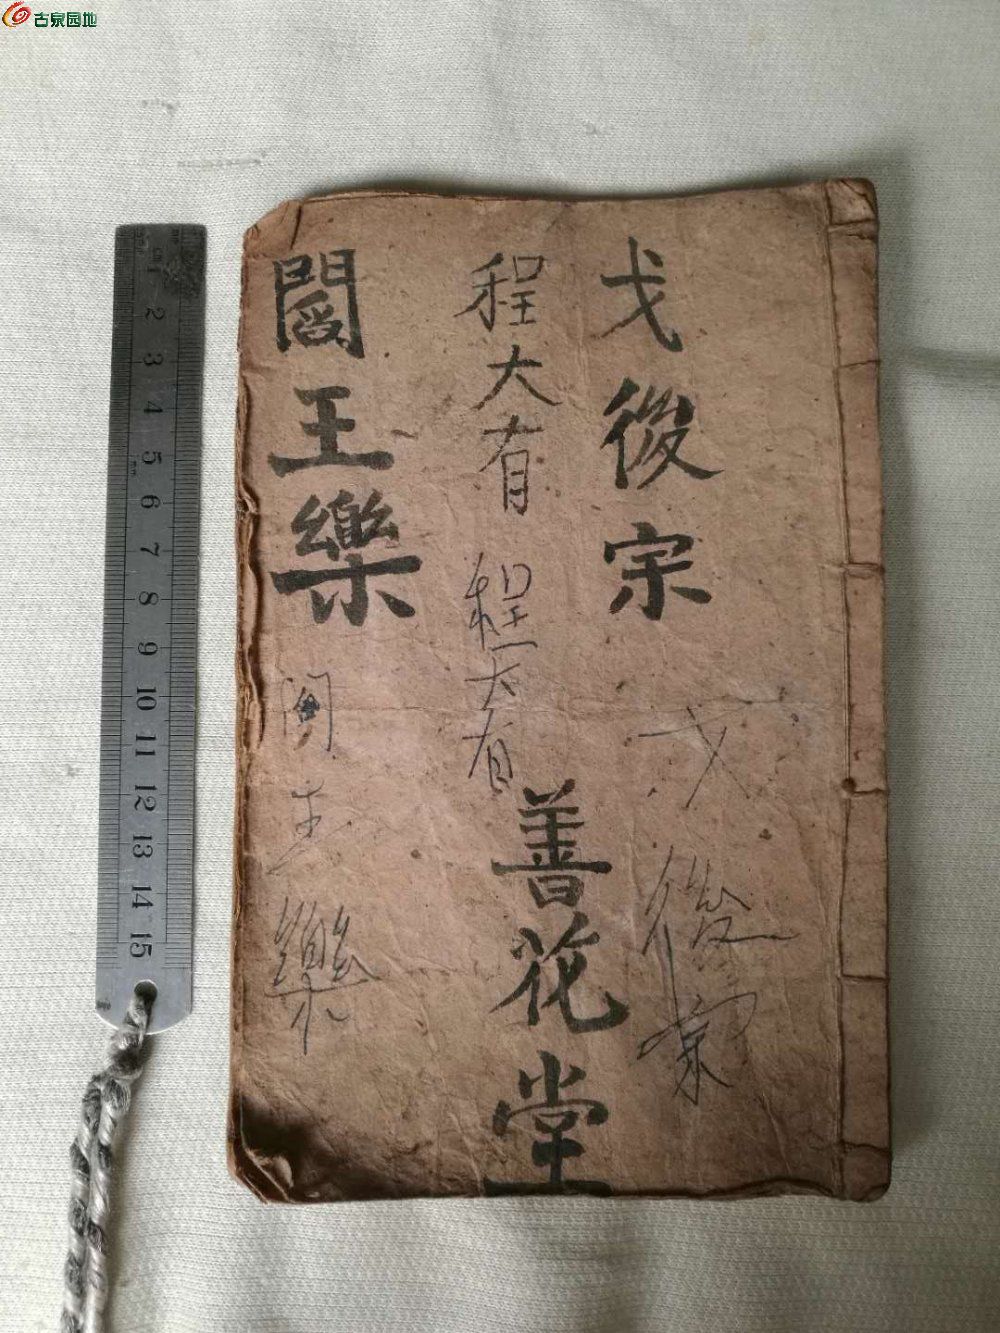 古泉园地
戈後宗
戈後宗
程大有
程大有
善花堂
閻王樂
樂
2 3 4 5 6 7 8 9 10 11 12 13 14 15